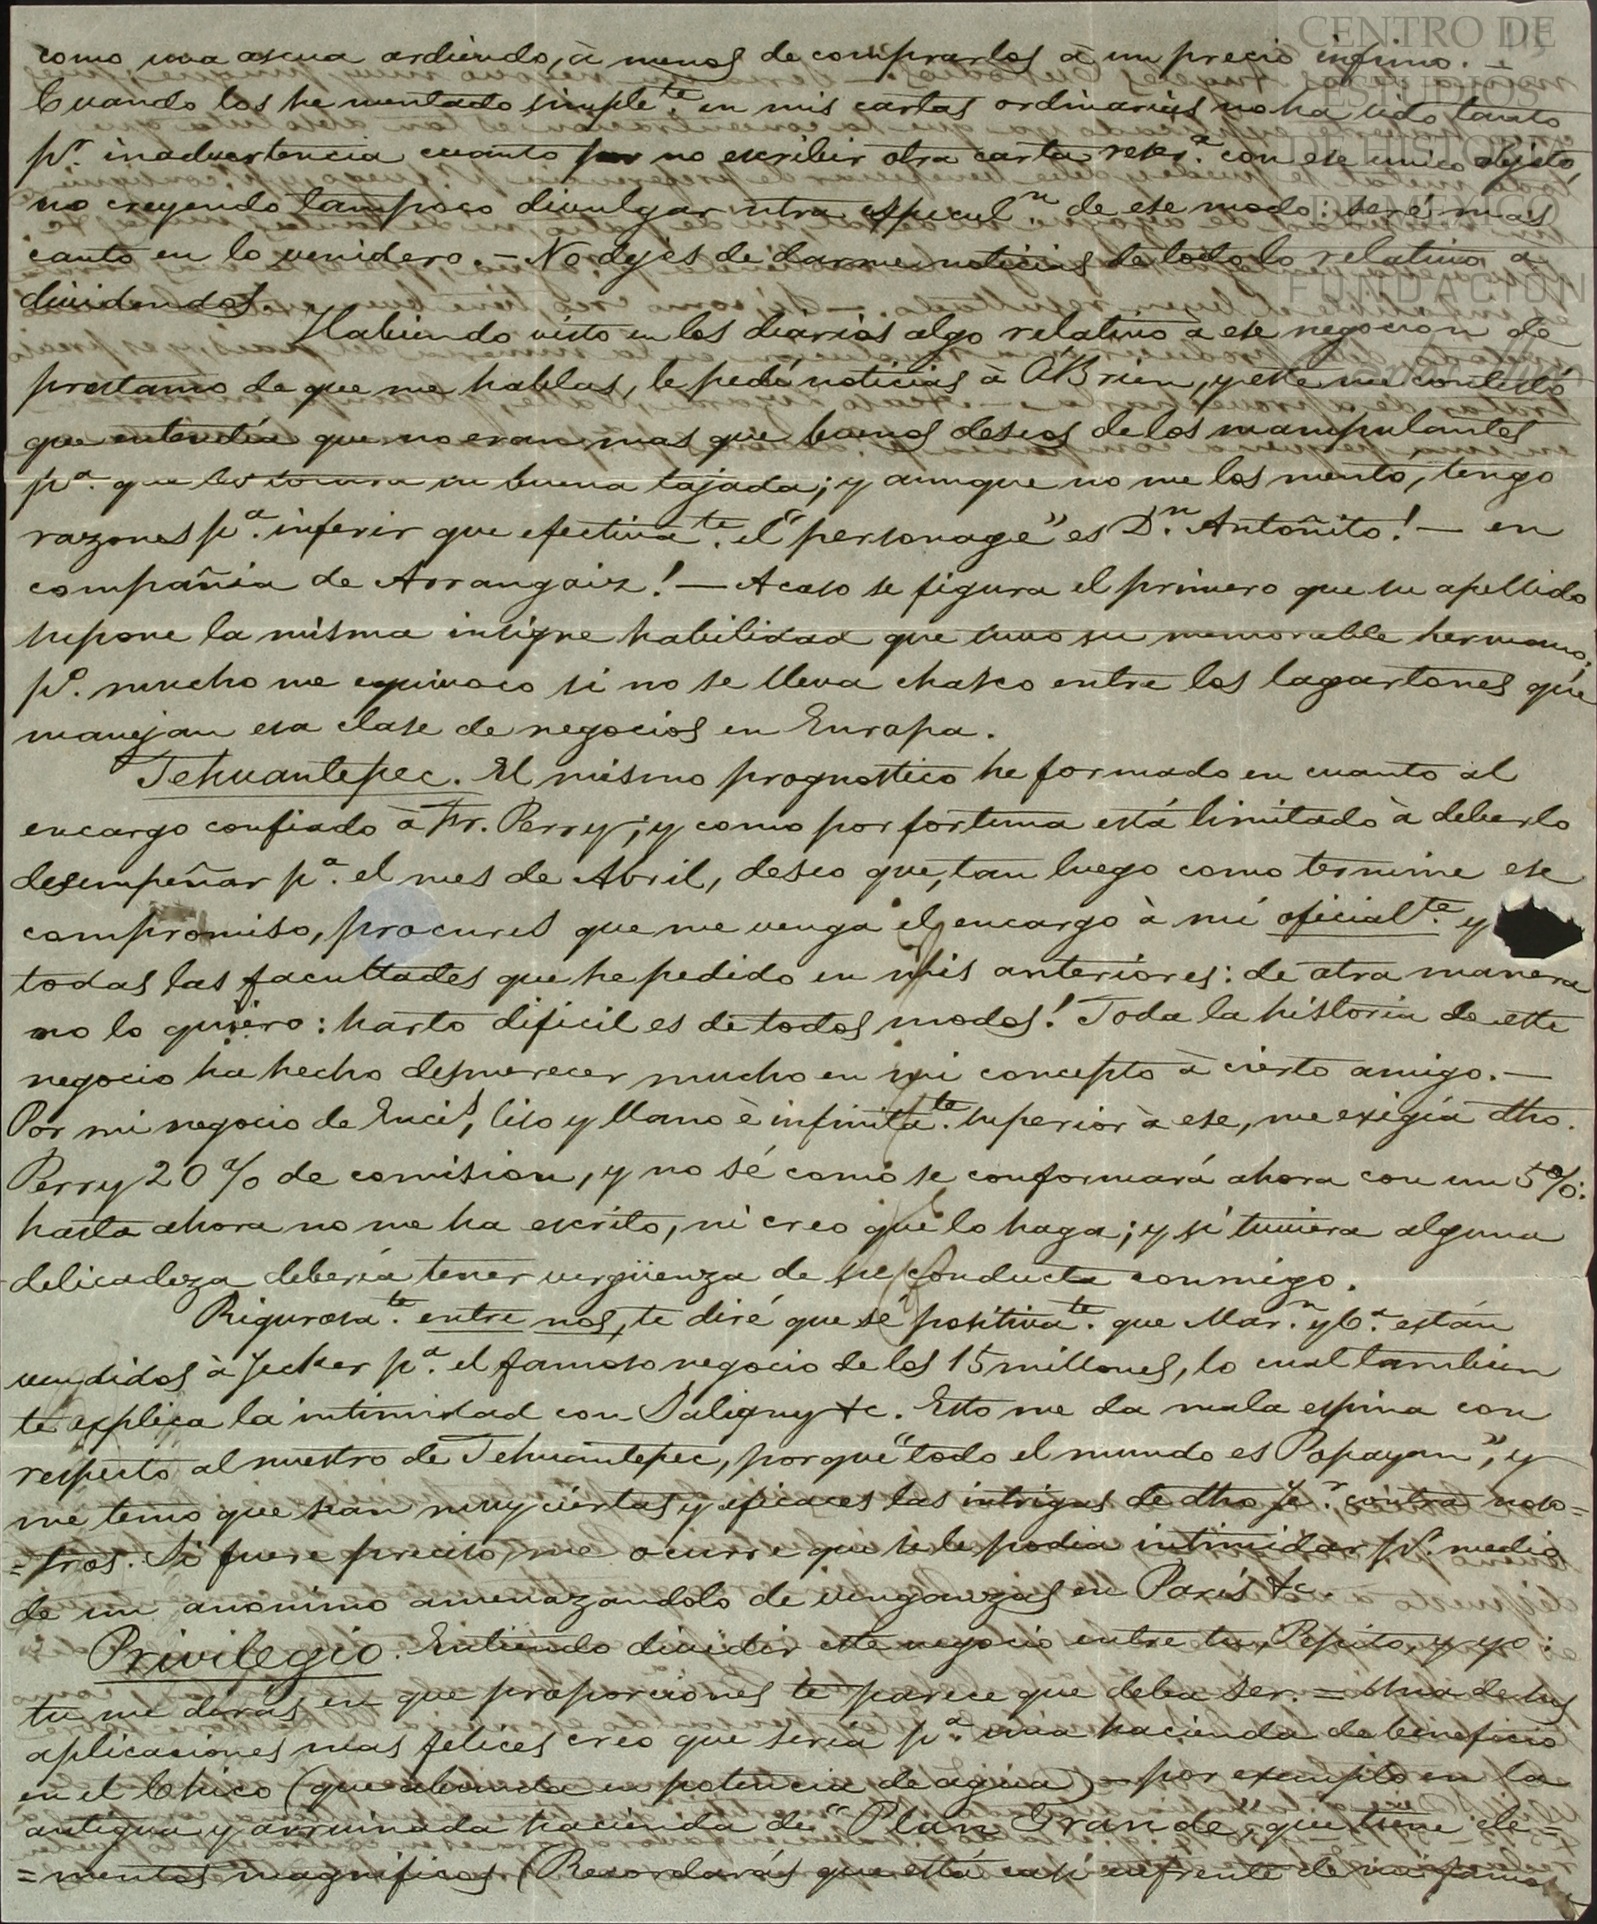 como una ascua ardiendo, à menos de comprarlos à un precio infimo. –
Cuando los he mentado simplete. en mis cartas ordinarias no ha sido tanto
pr. inadvertencia cuanto por no escribir otra carta reserª. con ese unico objeto,
no creyendo tampoco divulgar ntra especuln. de ese modo: seré mas
cauto en lo venidero. – No dejes de darme noticias de todo lo relativo a
dividendos.
Habiendo visto en los diarios algo relativo à ese negocion de
prestamo de que me hablas, le pedí noticias à OBrien, y este me contestó
que entendía que no eran mas que buenos deseos de los manipulantes
pª. que les tocara su buena tajada; y aunque no me los mentó, tengo
razones pª. inferir que efectivate. el "personage" es Dn. Antoñito! – en
compañia de Arrangoiz! – Acaso se figura el primero que su apellido
supone la misma insigne habilidad que tuvo su memorable hermano;
pº. mucho me equivoco si no se lleva chasco entre los lagartones que
manejan esa clase de negocios en Europa.
Tehuantepec. El mismo prognostico he formado en cuanto al
encargo confiado à Fr. Perry; y como por fortuna está limitado à deberlo
desempeñar pª. el mes de Abril, deseo que, tan luego como termine ese
compromiso, procures que me venga el encargo à mí oficialte. y
todas las facultades que he pedido en mis anteriores: de otra manera
no lo quiero: harto dificil es de todos modos! Toda la historia de este
negocio ha hecho desmerecer mucho en mi concepto à cierto amigo. –
Por mi negocio de Encis, liso y llano è infinitate. superior à ese, me exigía dho.
Perry 20 % de comision, y no sé como se conformará ahora con un 5 %:
hasta ahora no me ha escrito, ni creo que lo haga; y si tuviera alguna
delicadeza debería tener vergüenza de su conducta conmigo.
Rigurosate. entre nos, te diré que sé positivate. que Marn. y Cª. están
vendidos à Jecker pª. el famoso negocio de los 15 millones, lo cual tambien
te explica la intimidad con Saligny &c. Esto me da mala espina con
respecto al nuestro de Tehuantepec, porque "todo el mundo es Popayan", y
me temo que sean muy ciertas y eficaces las intrigas de dho Jr. contra noso=
=tros. Si fuere preciso, me ocurre que se le podia intimidar pr. medio
de un anonimo amenazandolo de venganzas en Paris &c.
Privilegio. Entiendo dividir este negocio entre tu, Pepito, y yo:
tu me dirás en que proporciones te parece que deba ser. = Una de sus
aplicaciones mas felices creo que sería pª. una hacienda de beneficio
en el Chico (que abunda en potencia de agua) – por exemplo en la
antigua y arruinada hacienda de "Plan Grande", que tiene ele=
=mentos magnificos. (Recordarás que está casi enfrente de mi
CENTRO DE
ESTUDIOS
DE HISTORIA
DE MÉXICO
FUNDACIÓN
Carlos Slim